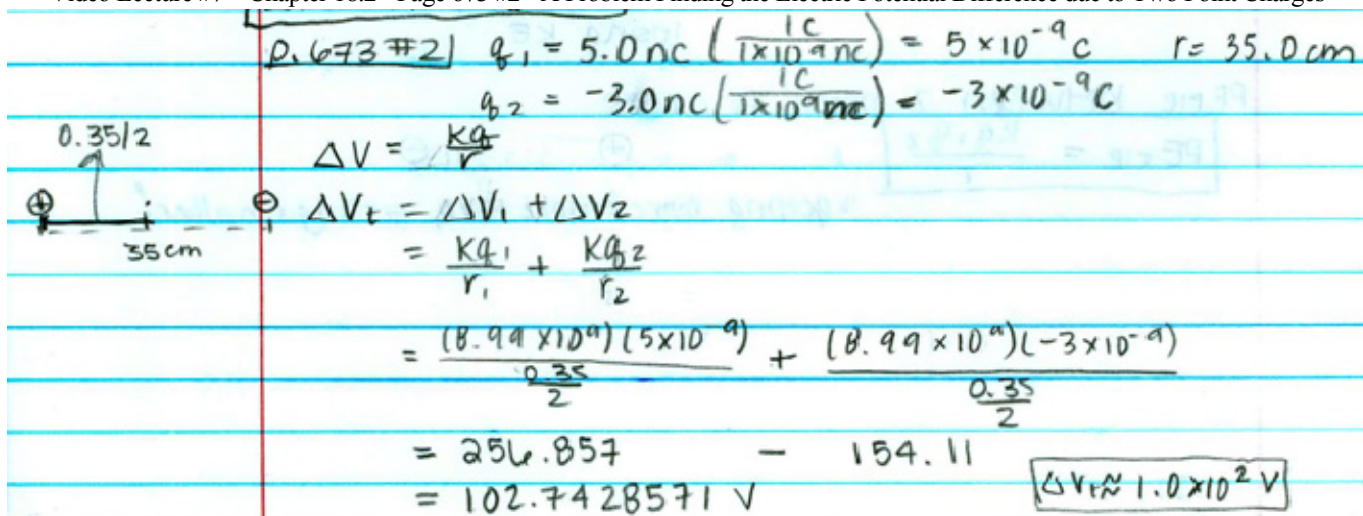 p. 673 #2 q₁ = 5.0 nc ( 1C / 1x10⁹ nc ) = 5 x 10⁻⁹ C r = 35.0 cm
q₂ = -3.0 nc ( 1C / 1x10⁹ nc ) = -3 x 10⁻⁹ C
0.35/2
ΔV = Kq / r
⊕ ⊖ ΔVt = ΔV₁ + ΔV₂
35cm
= Kq₁ / r₁ + Kq₂ / r₂
= (8.99 x 10⁹)(5x10⁻⁹) / (0.35 / 2) + (8.99 x 10⁹)(-3 x 10⁻⁹) / (0.35 / 2)
= 256.857 - 154.11
= 102.7428571 V ΔVt ≈ 1.0 x 10² V